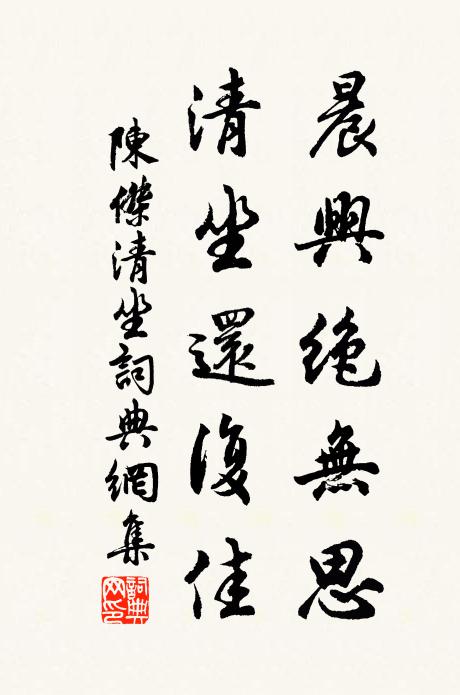 晨興絶無思
清坐還復佳
陳傑清坐詞典網集
詞典
网印